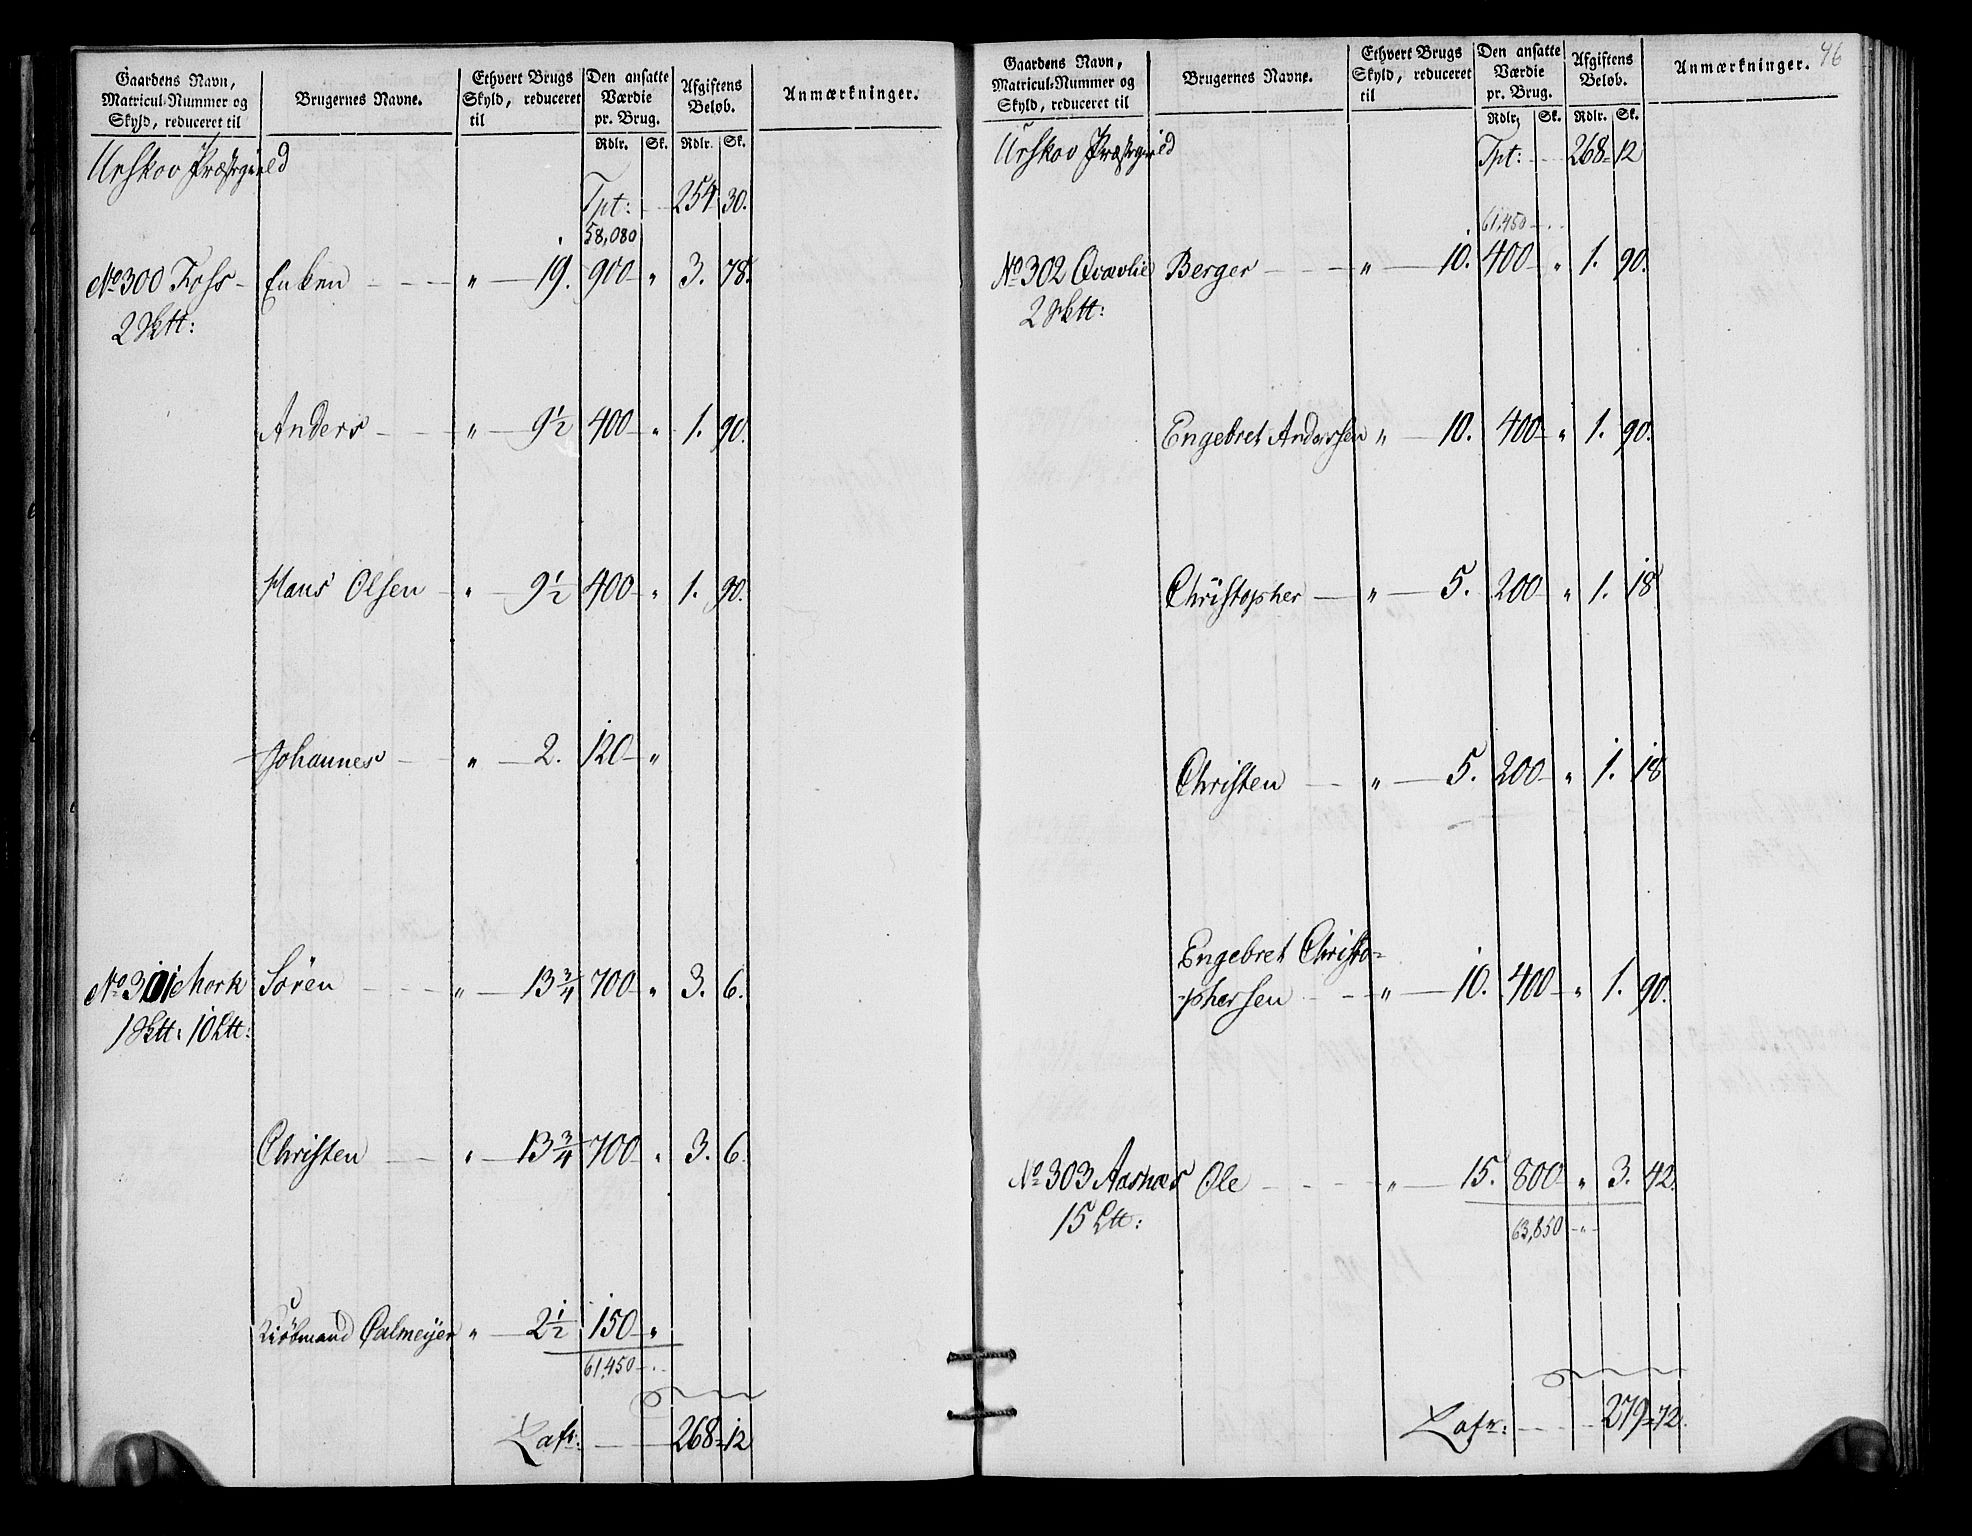 Gaardens Navn,
Matricul-Nummer og
Skyld, reduceret til
Brugernes Navne.
Ethvert Brugs
Skyld, reduceret
til
Den ansatte
Værdie
pr. Brug.
Afgiftens
Beløb.
Anmærkninger.
Rdlr. Sk. Rdlr. Sk.
Urskov Præstegield
Tpt: 254 30.
58,080
No 300 Fohs Enken " 19. 900 " 3. 78.
2 Sktt:
Anders " 9 1/2 400 " 1. 90.
Hans Olsen " 9 1/2 400 " 1. 90.
Johannes " 2. 120 "
No 301 Mork Sören " 13 3/4 700 " 3. 6.
1 Sktt: 10 Ltt:
Christen " 13 3/4 700 " 3. 6.
Kiöbmand Calmeyer " 2 1/2 150 "
61,450
Lafr: 268 12
46
Gaardens Navn,
Matricul-Nummer og
Skyld, reduceret til
Brugernes Navne.
Ethvert Brugs
Skyld, reduceret
til
Den ansatte
Værdie
pr. Brug.
Afgiftens
Beløb.
Anmærkninger.
Rdlr. Sk. Rdlr. Sk.
Urskov Præstegield Tpt: 268 12
61,450
No 302 Qvævlie Berger " 10. 400 " 1. 90.
2 Sktt:
Engebret Andersen " 10. 400 " 1. 90.
Christopher " 5. 200 " 1. 18
Christen " 5. 200 " 1. 18
Engebret Christo=
phersen " 10. 400 " 1. 90.
No 303 Aasnæs Ole " 15. 800 " 3. 42.
15 Ltt:
63,850
Lafr: 279 72.